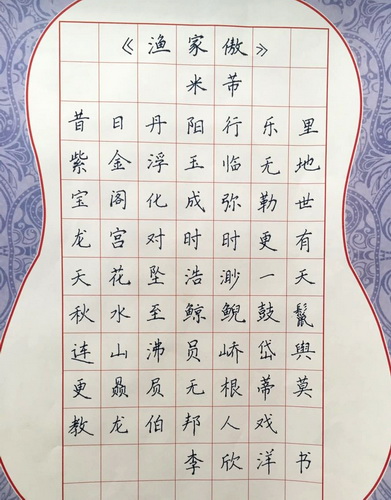 《渔家傲》
米芾
昔日丹阳行乐里
紫金浮玉临无地
宝阁化成弥勒世
龙宫对时时更有
天花坠浩渺一天
秋水至鲸鲵鼓鬣
连山沸员峤岱舆
更赑屃无根蒂莫
教龙伯邦人戏
李欣洋书